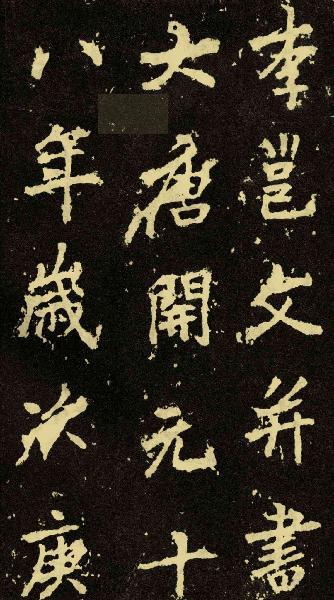 李邕文并書
大唐開元十
八年歲次庚